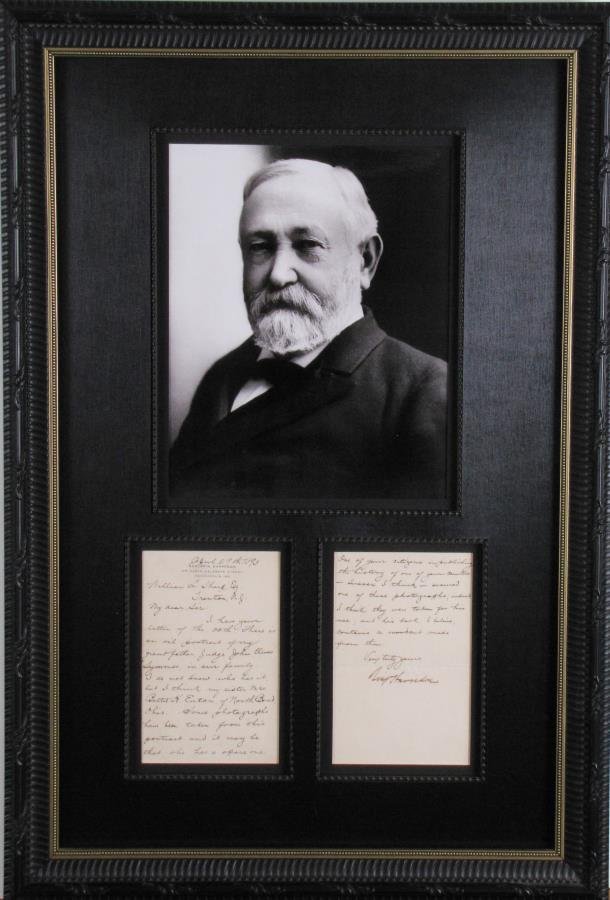 BENJAMIN HARRISON
William
Trenton, N.J.
My dear Sir
I have your
letter of the There is
an oil portrait of my
great father Judge John Cleves
Symmes in our family
I do not know who has it,
but I think my sister Mrs
Eaton of North Bend
Ohio. Some photographs
have been taken from this
portrait and it may be
that she has a spare one.
One of your citizens in publishing
the history of one of your counties
- Sussex I think - secured
one of these photographs, which
I think they was taken for his
use; and his book I believe,
contains a woodcut made
from them
Very truly yours
Benj Harrison